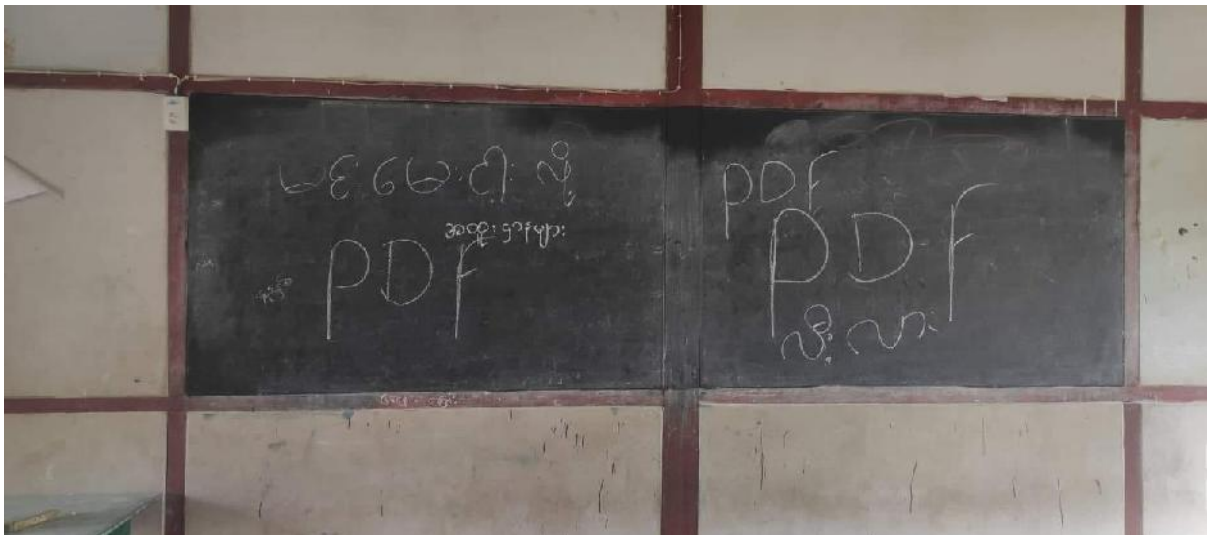 မင်းမေငါလိုး
အထူးဌာနများ
PDF
PDF
PDF
လီးလား